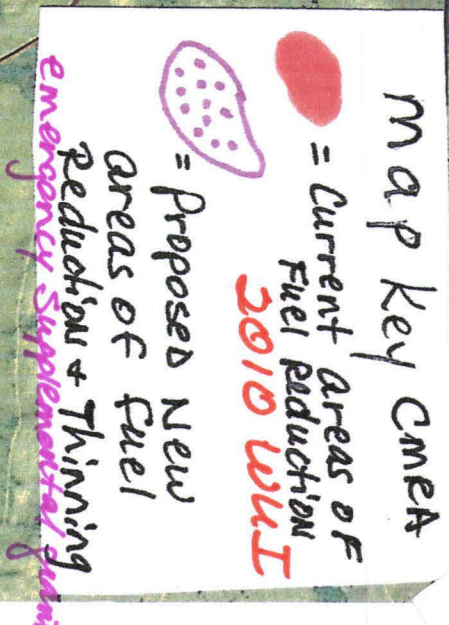 map Key CMRA
= Current areas of
Fuel Reduction
2010 WUI
= Proposed New
areas of fuel
Reduction & Thinning
emergency Supplemental